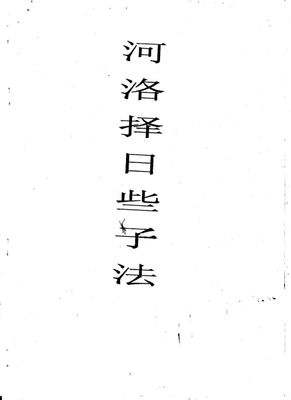 河洛择日些子法